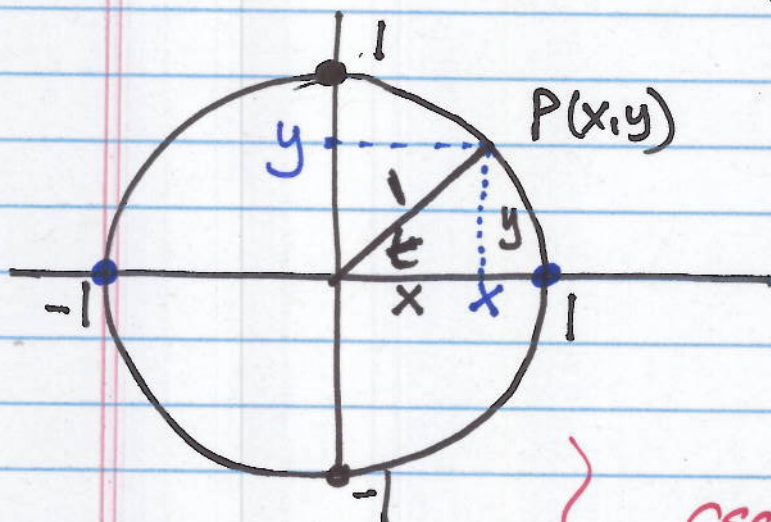 1
P(x,y)
y
1
y
t
-1
x
x
1
-1